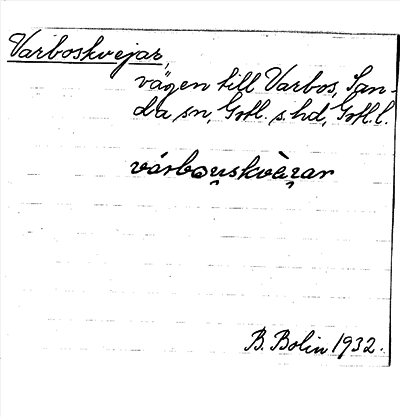 Varboskvejar,
vägen till Varbos, San-
da sn, Gotl. s. hd, Gotl. l.
várbou̯skvè̀ı̯ar
B. Bolin 1932.